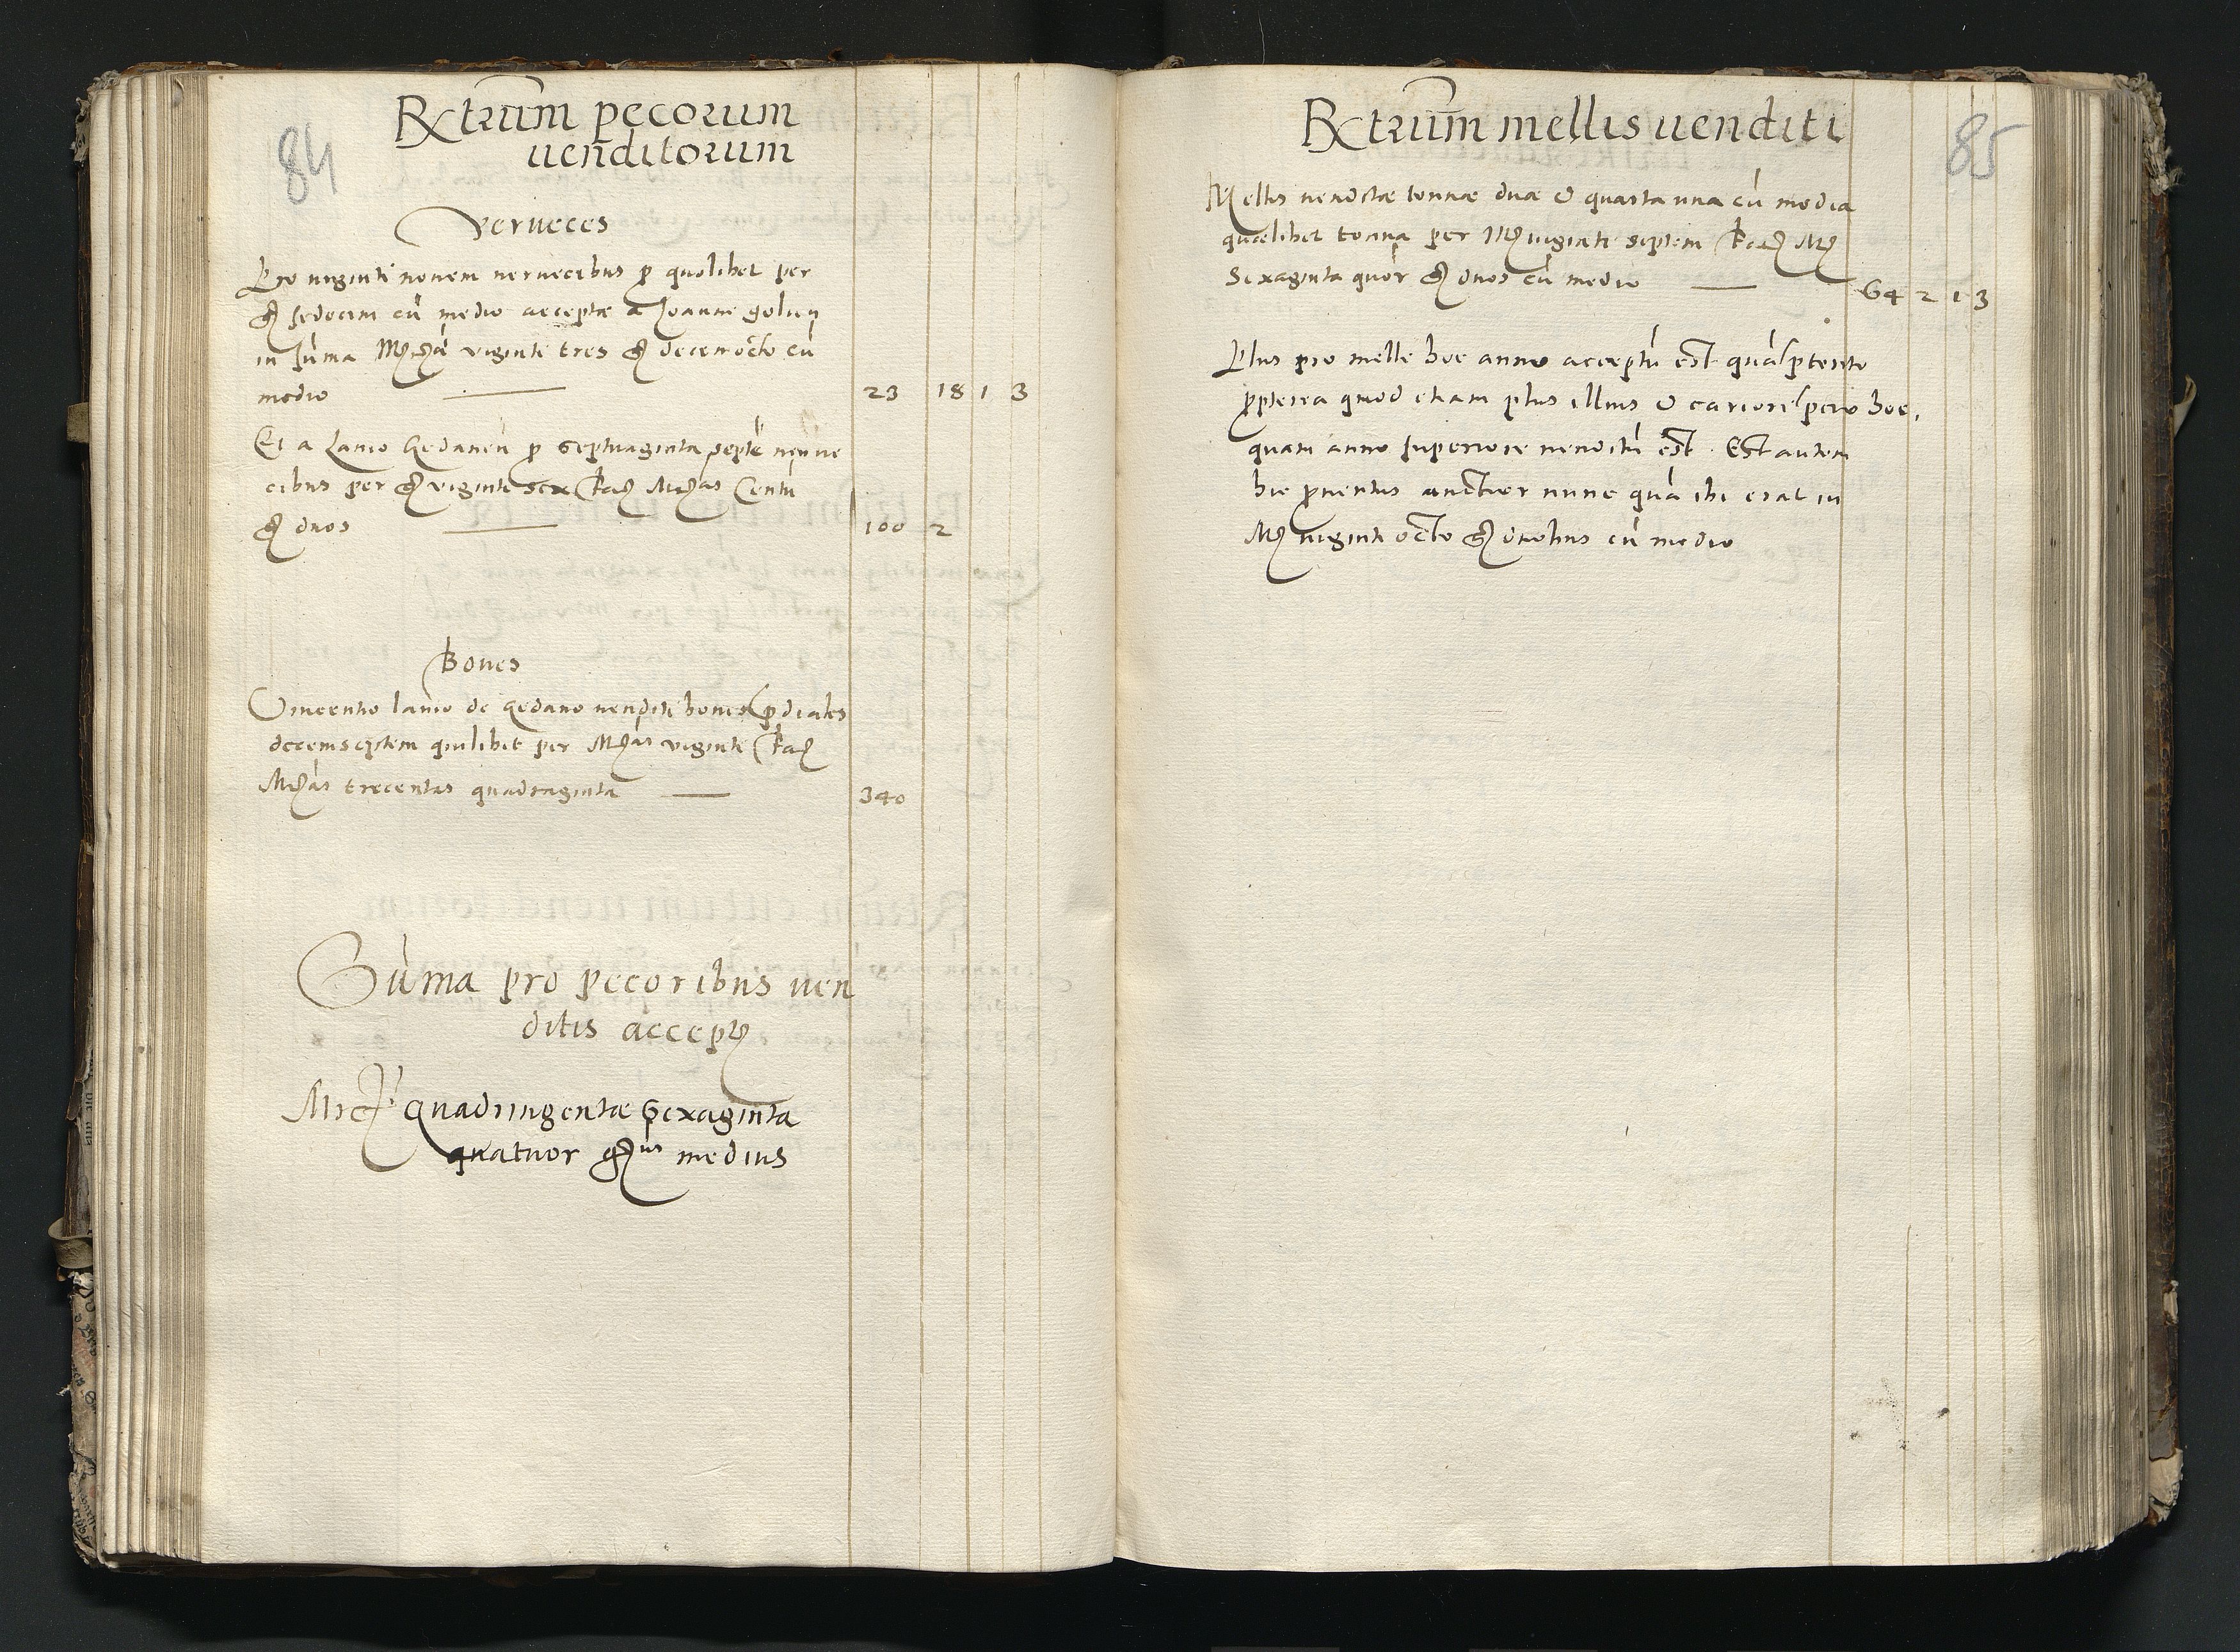 84
Rxtrum pecorum
uenditorum
Verueces
Pro uiginti nouem ueruecibus p quolibet per
gͦ sedecim cū medio acceptæ a Joanne
in suma viginti tres gͦ decemocto cū
medio — 23 18 1 3
Et a Lanio Gedaneñ p septuaginta septē uerue
cibus per gͦ viginti sex fac Mcas Centū
gͦ duos — 100 2
Boues
Vincentio lanio de Gedano venditi boues pdiales
decemseptem quilibet per Mcas viginti fac
Mcas trecentas quadraginta — 340
Sūma pro pecoribus uen
ditis accept
Mrc quadringentæ Sexaginta
quatuor gus medius
85
Rxtrum mellis uenditi
Mellis venditæ tonnæ duæ & quarta una cū media
quælibet tonna per Mc uiginti septem fac Mc
Sexaginta quor gͦ duos cū medio — 64 2 1 3
Plus pro melle hoc anno acceptū est quā pterito
ppterea quod etiam plus illius & cariore precio hoc,
quam anno superiore venditū est. Est autem
hic puentus auctior nunc quā ibi erat in
Mc uiginti octo gͦ duobus cū medio